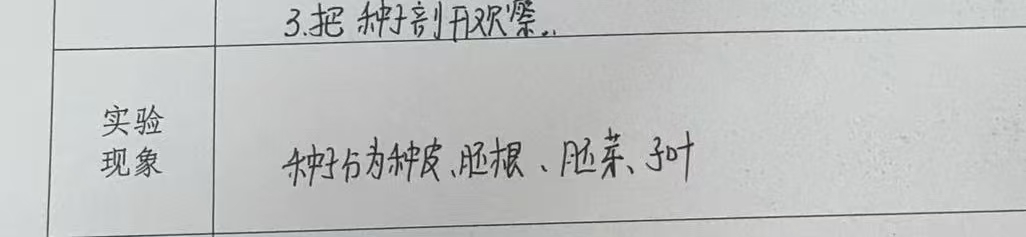 3.把种子剖开观察..
实验
现象
种子分为种皮、胚根、胚芽、子叶